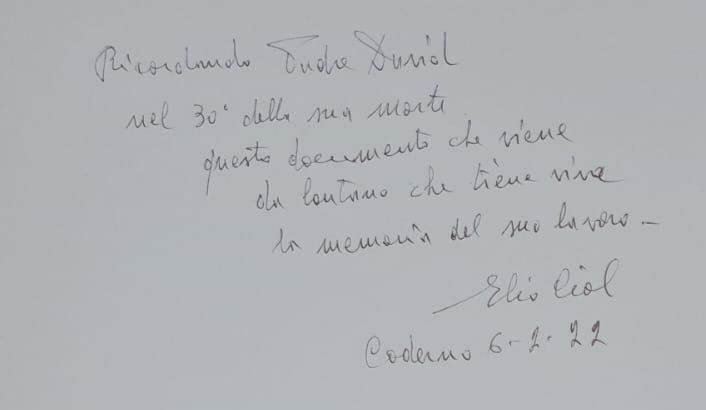 Ricordando Padre David
nel 30° della sua morte
questo documento che viene
da lontano che tiene viva
la memoria del suo lavoro -
Elio Ciol
Coderno 6-2-22